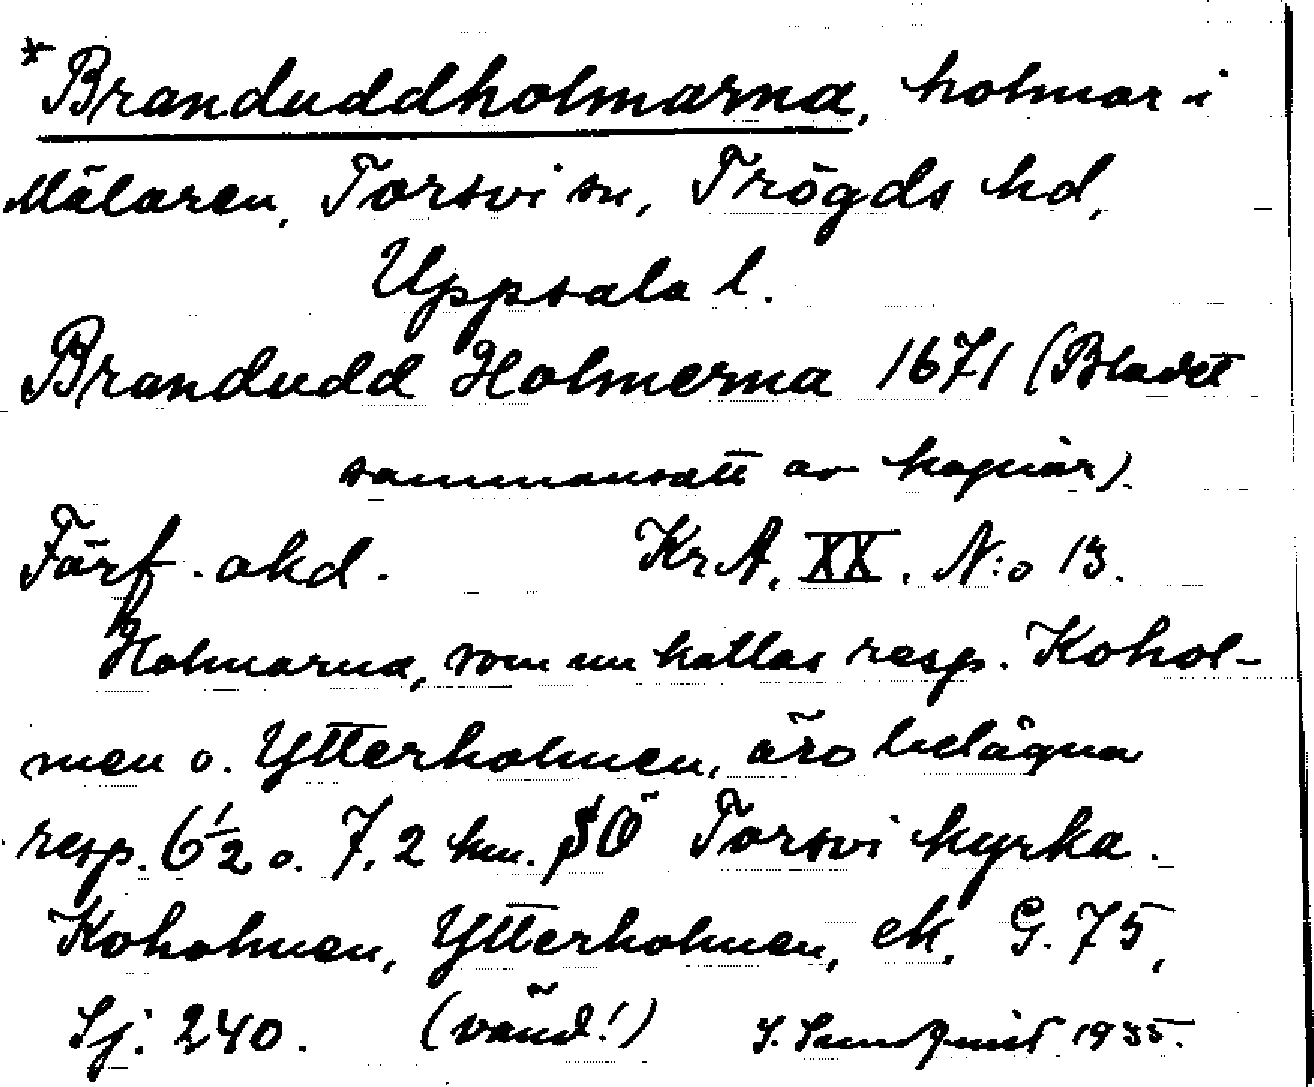 *Branduddholmarna, holmar i
Mälaren, Torsvi sn, Trögds hd,
Uppsala l.
Brandudd Holmerna 1671 (Bladet
sammansatt av kopior)
Förf. okd. KrA. XX. N:o 13.
Holmarna, som nu kallas resp. Kohol-
men o. Ytterholmen, äro belägna
resp. 6½ o. 7,2 km. SÖ Torsvi kyrka.
Koholmen, Ytterholmen, ek. G. 75,
Sj. 240. (vänd!) 1935.